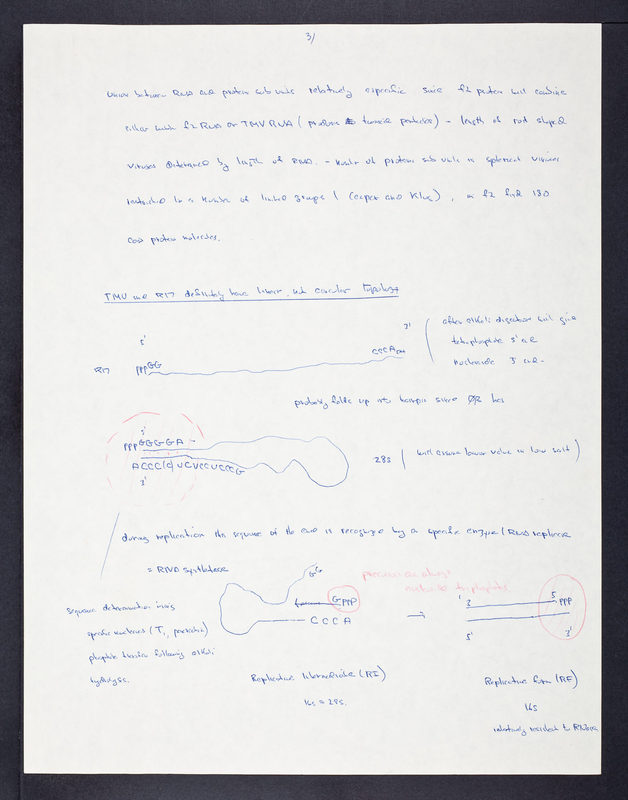 3/
Union between RNA and protein sub units relatively specific since f2 protein will combine
either with f2 RNA or TMV RNA ( produces tumour particles) - length of rod shaped
viruses determined by length of RNA. - Number of protein sub units in spherical viruses
restricted to a number of linked groups ( Casper and Klug ), in f2 find 180
coat protein molecules.
TMV and R17 definitely have linear, not circular typology
5' 3'
R17 pppGG CCCA OH
after alkali digestion will give
tetraphosphate 5' end
nucleoside 3' end.
probably folds up into hairpin since ØR has
5'
pppGGGGA -
ACCC(C)UCUCCUCCG
3'
28s ( will assume lower value in low salt )
during replication the sequence at the end is recognized by a specific enzyme ( RNA replicase
= RNA synthetase
GG
GPPP
CCCA
nucleoside triphosphates
3' 5' PPP
5' 3'
Sequence determination using
specific nucleases (T1, pancreatic)
phosphate transfer following alkali
hydrolysis.
Replicative Intermediate (RI)
16s = 28s.
Replicative form (RF)
16s
relatively resistant to RNase